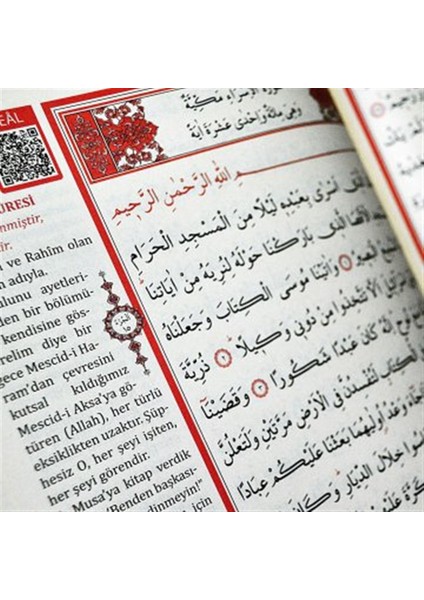 EÂL
ÛRESİ
nmiştir,
ir.
ve Rahîm olan
ın adıyla.
ulunu ayetleri-
den bir bölümü-
kendisine gös-
relim diye bir
gece Mescid-i Ha-
ram'dan çevresini
kutsal kıldığımız
Mescid-i Aksa'ya gö-
türen (Allah), her türlü
eksiklikten uzaktır. Şüp-
hesiz O, her şeyi işiten,
her şeyi görendir.
Musa'ya kitap verdik
"Benden başkası-
edinmeyin!"
için
سُورَةُ الْاِسْرَاءِ مَكِّيَّةٌ
وَهِىَ مِائَةٌ وَاِحْدٰى عَشْرَةَ اٰيَةً
مِ اللّٰهِ الرَّحْمٰنِ الرَّحٖيمِ
الَّذٖى اَسْرٰى بِعَبْدِهٖ لَيْلًا مِنَ الْمَسْجِدِ الْحَرَامِ
الْاَقْصَا الَّذٖى بَارَكْنَا حَوْلَهُ لِنُرِيَهُ مِنْ اٰيَاتِنَا
الْبَصٖيرُ ١ وَاٰتَيْنَا مُوسَى الْكِتَابَ وَجَعَلْنَاهُ
اَلَّا تَتَّخِذُوا مِنْ دُونٖى وَكٖيلًا ٢ ذُرِّيَّةَ
نُوحٍ اِنَّهُ كَانَ عَبْدًا شَكُورًا ٣ وَقَضَيْنَا
الْكِتَابِ لَتُفْسِدُنَّ فِى الْاَرْضِ مَرَّتَيْنِ وَلَتَعْلُنَّ
وَعْدُ اُولٰيهُمَا بَعَثْنَا عَلَيْكُمْ عِبَادًا
خِلَالَ الدِّيَارِ وَكَانَ